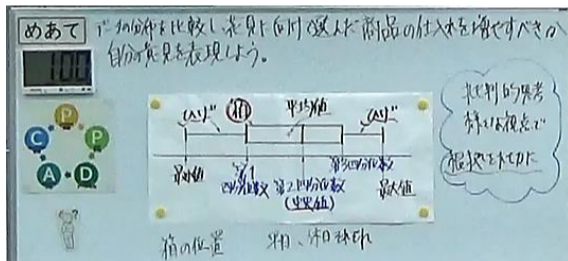 めあて データの分布を比較し、花見に向けて選んだ商品の仕入れを増やすべきか
自分の意見を表現しよう。
1:00
P
P
D
A
C
ひげ 箱 平均値 ひげ
最小値 第1四分位数 第2四分位数(中央値) 第3四分位数 最大値
批判的思考
様々な視点で
根拠をもとに
箱の位置 平日、休日